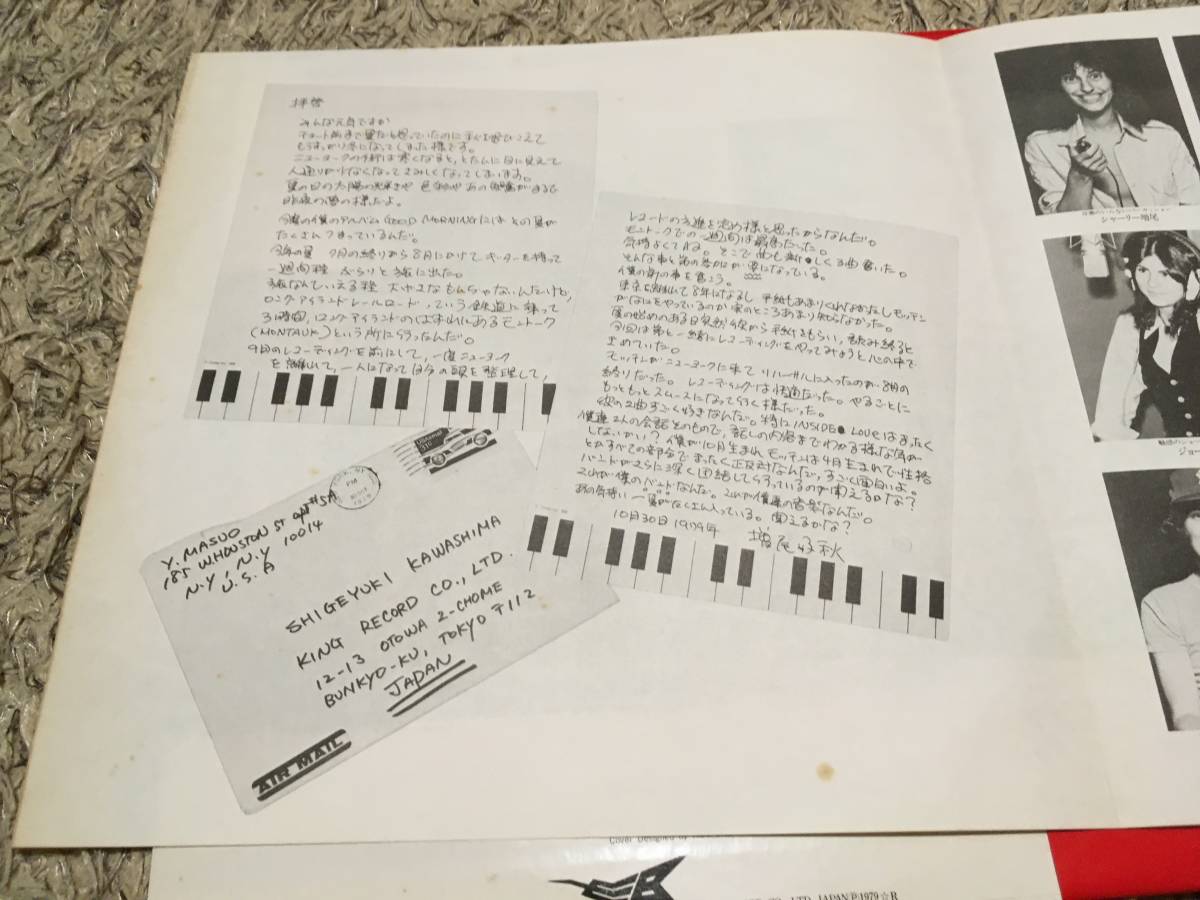 拝啓
みんな元気ですか
チョット前まで夏だと思っていたのに秋を飛びこえて
もうすっかり冬になってしまった様です。
ニューヨークの街は寒くなると、とたんに目に見えて
人通りが少なくなってさみしくなってしまいます。
夏の日の太陽の輝きや色
昨夜の夢の様だよ。
今度の僕のアルバム GOOD MORNING にはその夏が
たくさんつまっているんだ。
今年の夏 7月の終りから8月にかけて、ギターを持って
一週間程 ぶらりと旅に出た。
旅なんていえる程 大ゲサなもんじゃないんだけど、
ロングアイランドレールロード、っていう鉄道に乗って
3時間、ロングアイランドのはずれにあるモントーク
(MONTAUK)という所に行ったんだ。
9月のレコーディングを前にして、一度ニューヨーク
を離れて、一人になって自分の頭を整理して、
レコードの方進を定め様と思ったからなんだ。
モントークでの一週間は最高だった。
気持よくてね。そこで曲も新しく3曲書いた。
僕の弟の事を書こう。
東京を離れて8年になるし 手紙もあまりくれなかったしモッチンが
なにをやっているのか 家のところあまり知らなかった。
今回は弟と一緒にレコーディングをやってみようと心の中で
止めていた。
モッチンがニューヨークに来て リハーサルに入ったのが 8月の
終りだった。レコーディングは快適だった。やるごとに
もっともっとスムースになって行く様だった。
彼の2曲すごく好きなんだ。特に INSIDE LOVE はまったく
僕達2人の会話そのもので、話しの内容までわかる様な気が
しないかい? 僕が10月生まれ モッチンは4月生まれで性格
とかすべての部分でまったく正反対なんだ、すごく面白いよ。
バンドがさらに深く団結して行っているのが聞えるかな?
これが僕のバンドなんだ。これが僕達の音楽なんだ。
あの気持いい夏がたくさん入っている。聞えるかな?
10月30日 1979年 増尾好秋
Y. MASUO
185 W.HOUSTON ST apt#5A
N.Y, N.Y 10014
U.S.A
PM
1979
SHIGEYUKI KAWASHIMA
KING RECORD CO., LTD.
12-13 OTOWA 2-CHOME
BUNKYO-KU, TOKYO 〒112
JAPAN
AIR MAIL
シャーリー増尾
Cover Designed by
LTD. JAPAN Ⓟ1979☆R